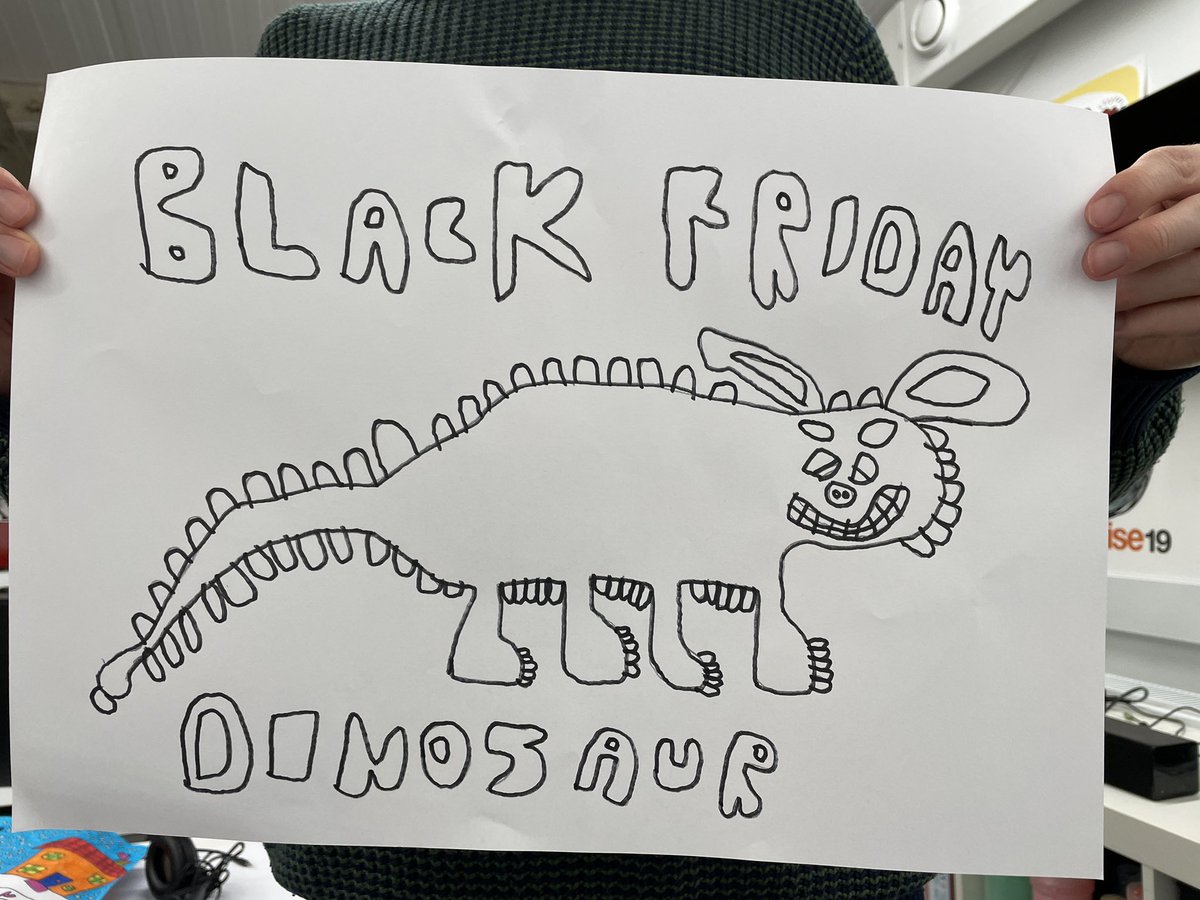 BLACK FRIDAY
ise19
DINOSAUR